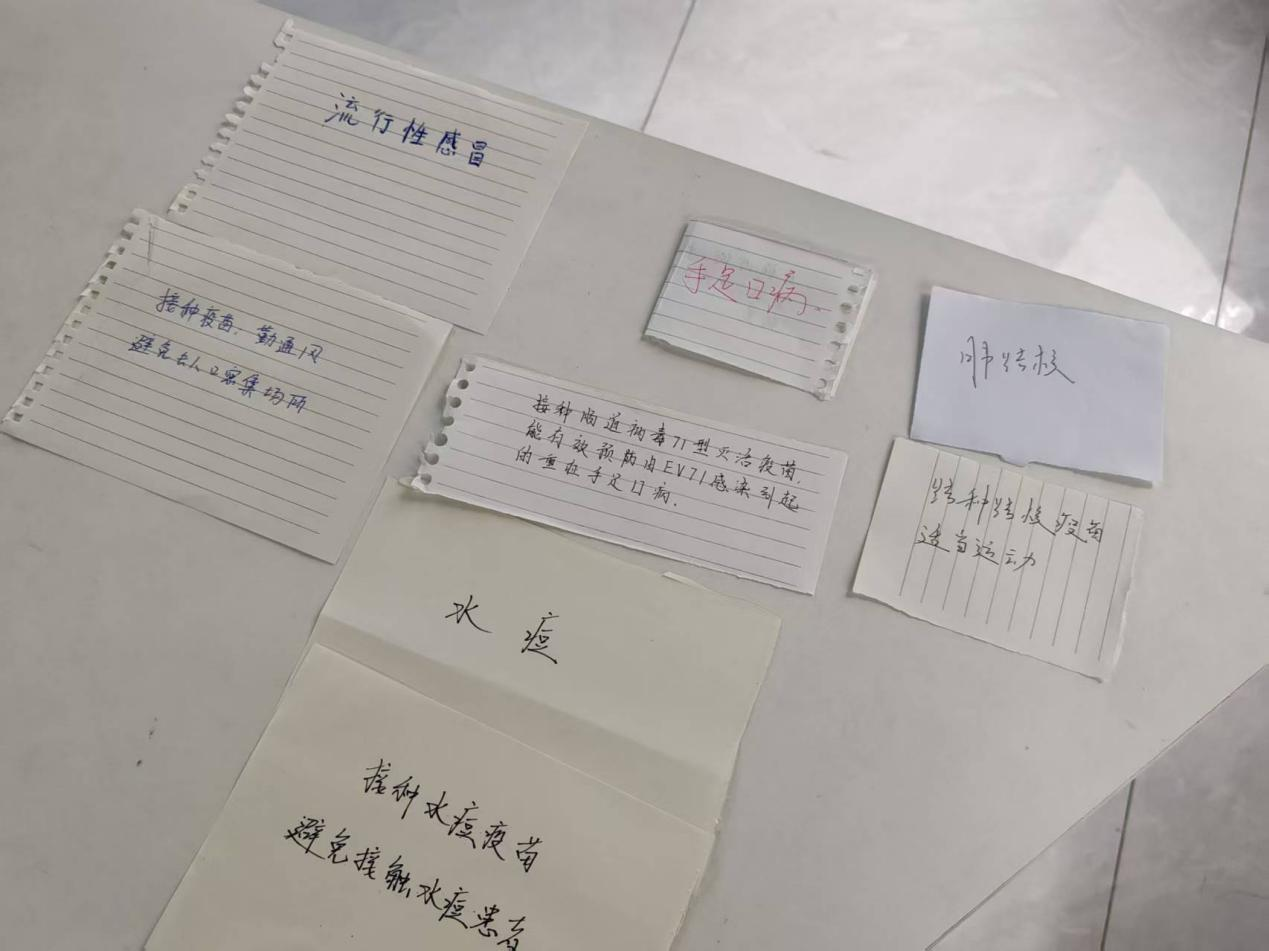 流行性感冒
接种疫苗，勤通风
避免去人口密集场所
手足口病.
接种肠道病毒71型灭活疫苗，
能有效预防由EV71感染引起
的重症手足口病.
肺结核
结种结核疫苗
适当运动
水痘
接种水痘疫苗
避免接触水痘患者